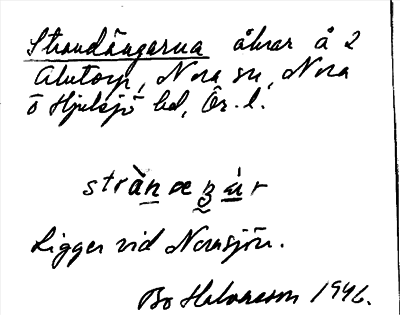 Strandängarna åkrar å 2
Alntorp, Nora sn, Nora
o Hjulsjö bd, Ör. l.
strànæʒ́úr
Ligger vid Norasjön.
Bo Halvarsson 1946.